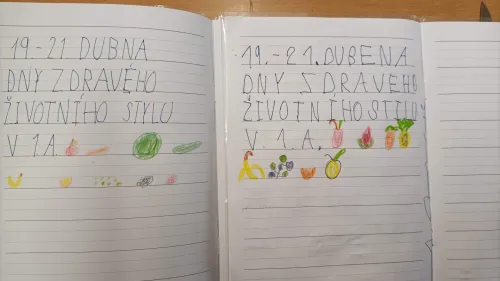 19-21 DUBNA
DNY ZDRAVÉHO
ŽIVOTNÍHO STYLU
V 1A.
19.-21.DUBENA
DNY ZDRAVEHO
ŽIVOTNÍHOSTYLU
V.1.A.